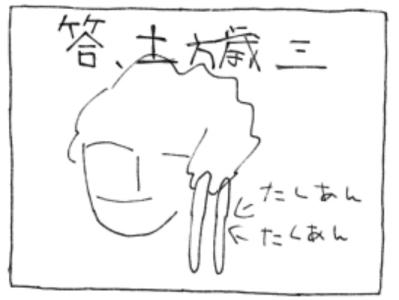 答、土方歳三
たくあん
たくあん